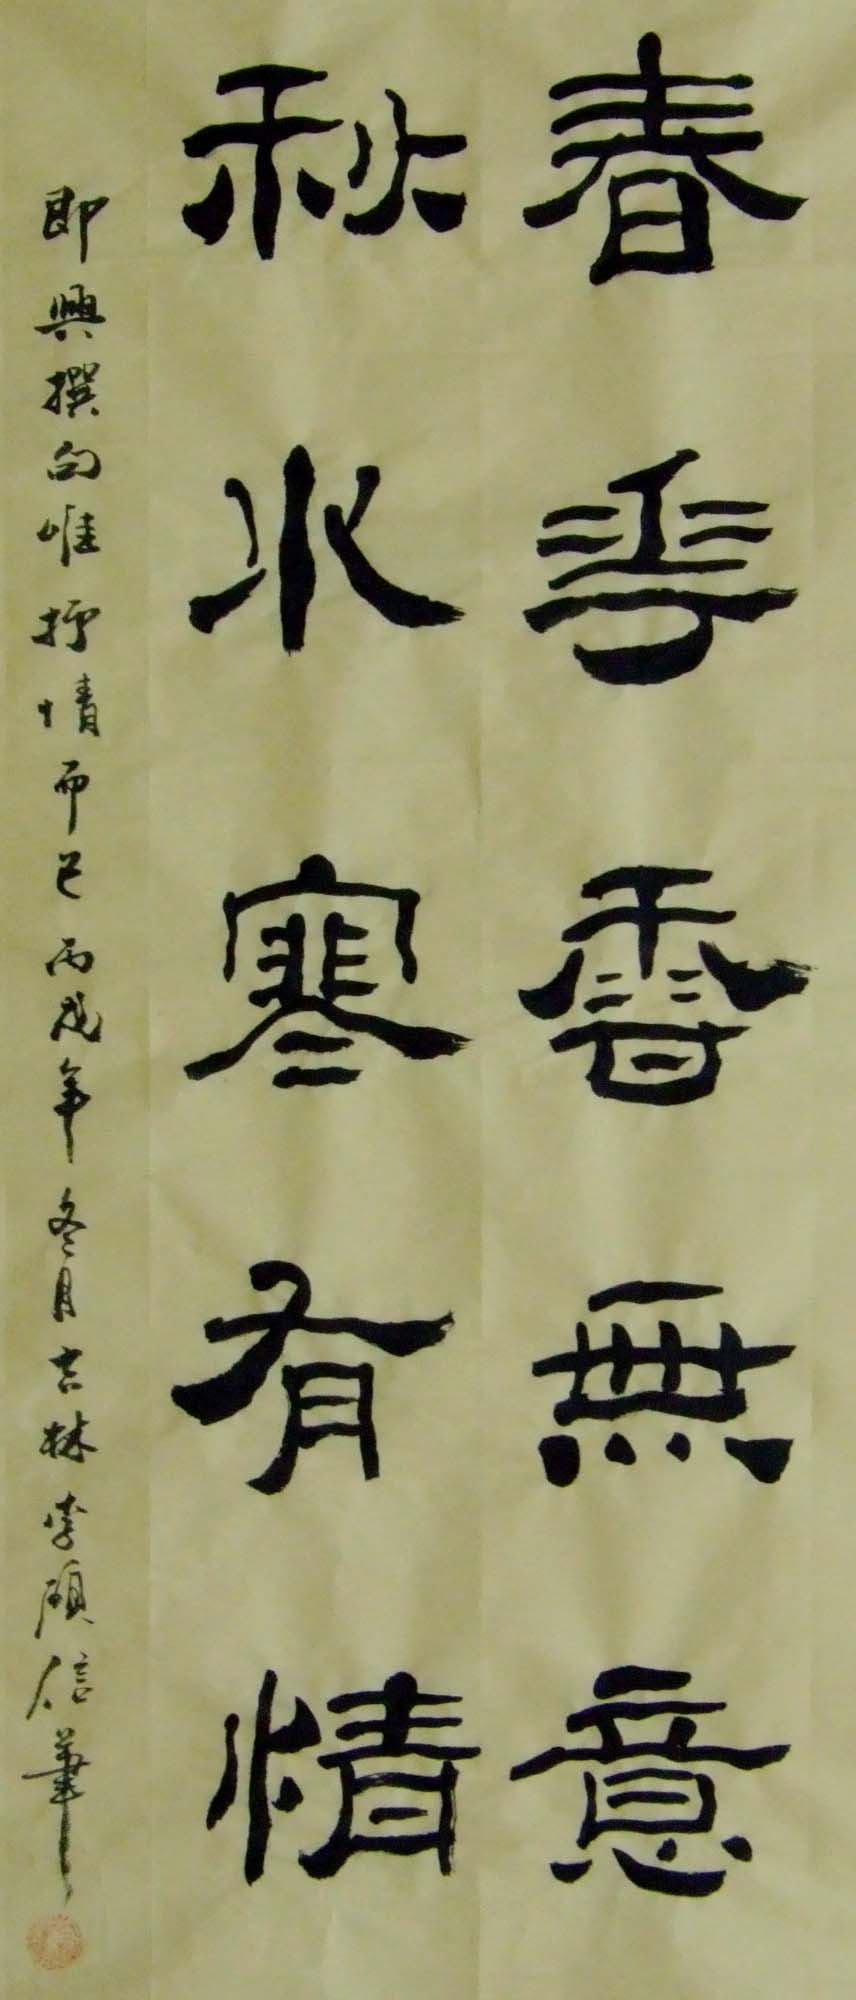 春華香無意
秋水寒有情
即興撰句唯抒情而已丙戌年冬月吉林李碩信筆